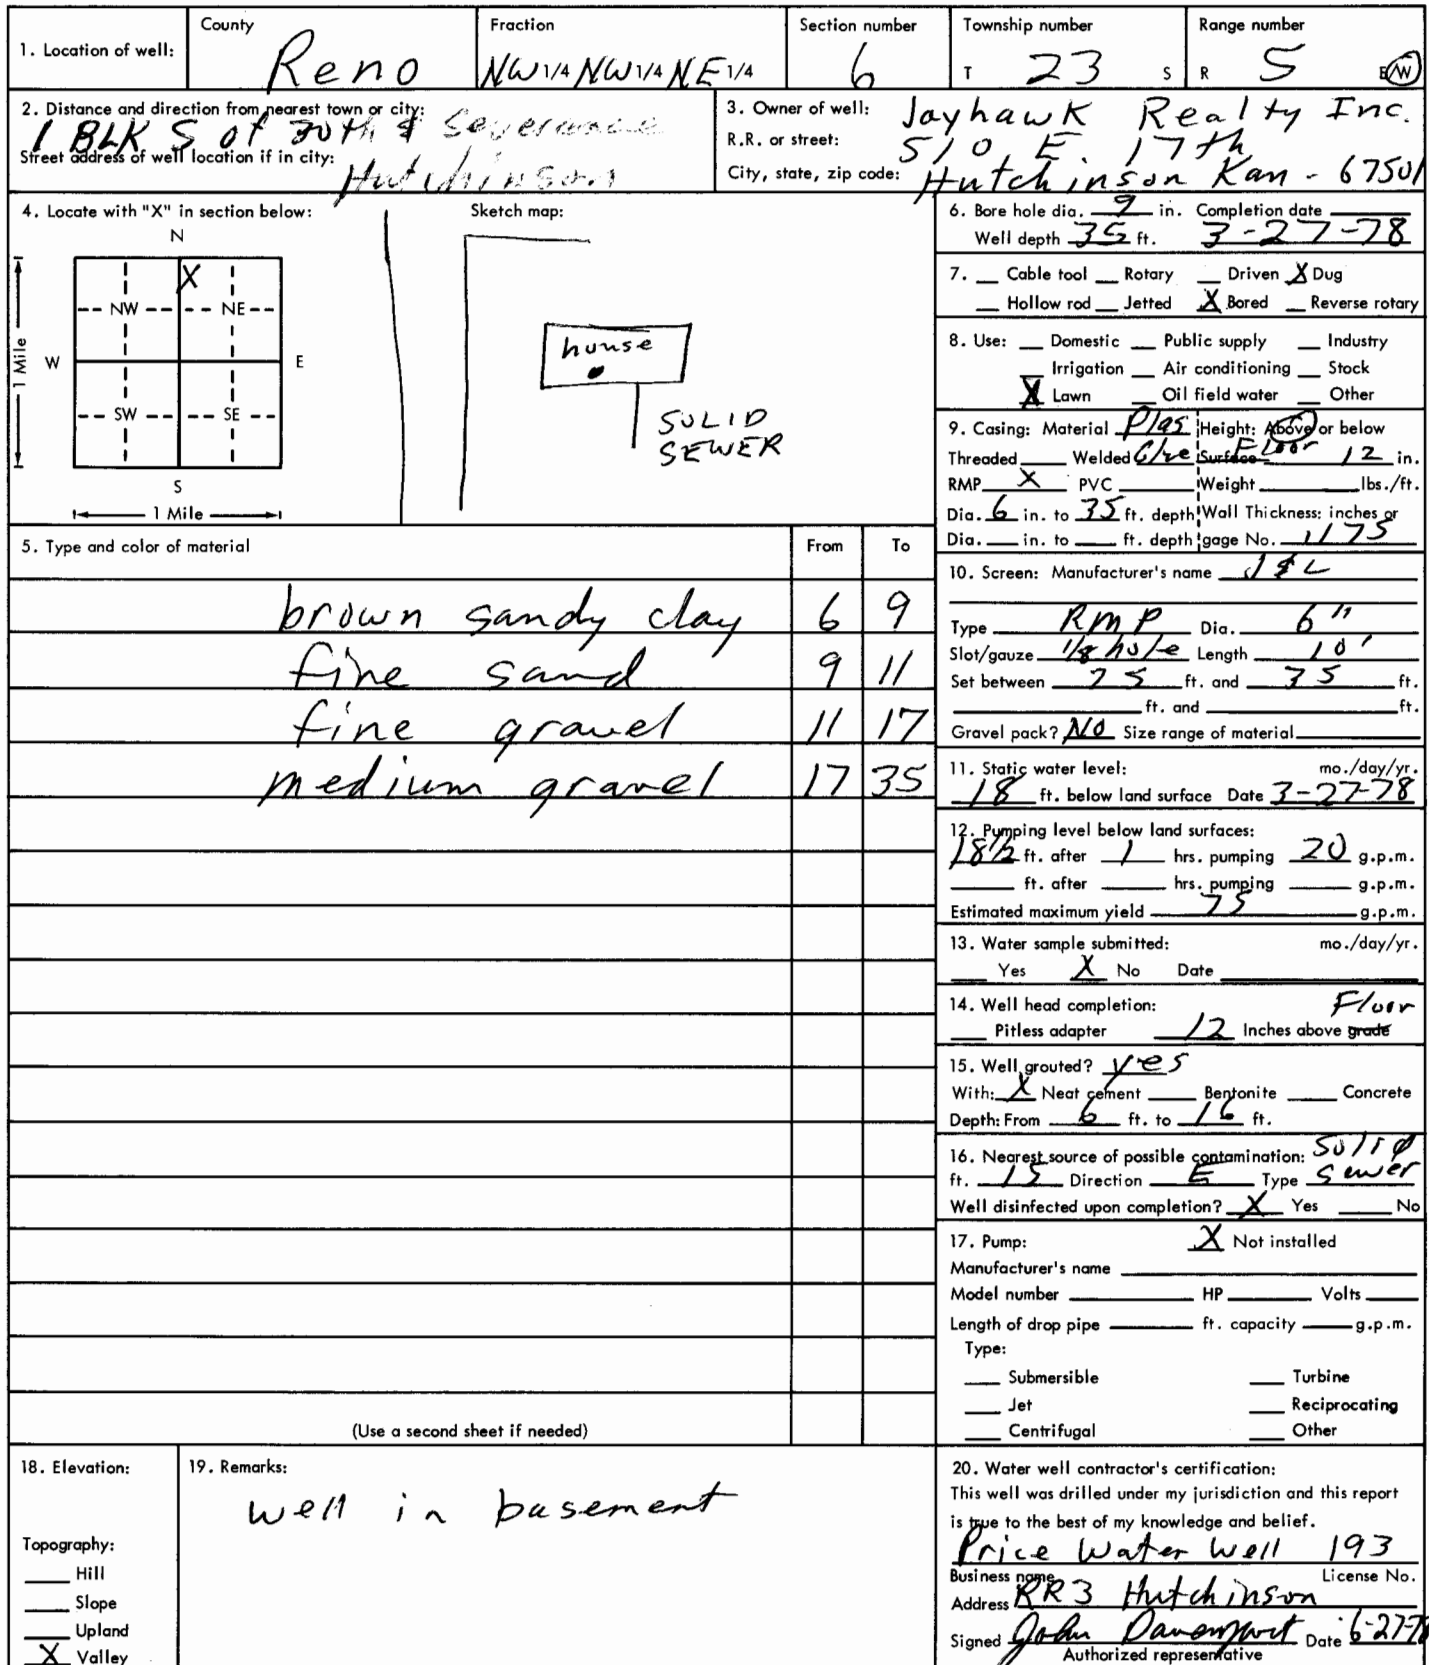 1. Location of well: County Reno Fraction NW 1/4 NW 1/4 NE 1/4 Section number 6 Township number T 23 S Range number R 5 E/W
2. Distance and direction from nearest town or city:
1 BLK S of 30th & Severance
Street address of well location if in city:
Hutchinson
3. Owner of well: Jayhawk Realty Inc.
R.R. or street: 510 E. 17th
City, state, zip code: Hutchinson Kan - 67501
4. Locate with "X" in section below:
N
X
NW NE
W E
1 Mile
SW SE
S
1 Mile
Sketch map:
house
SOLID
SEWER
5. Type and color of material From To
brown sandy clay 6 9
fine sand 9 11
fine gravel 11 17
medium gravel 17 35
(Use a second sheet if needed)
6. Bore hole dia. 9 in. Completion date
Well depth 35 ft. 3-27-78
7. Cable tool Rotary Driven X Dug
Hollow rod Jetted X Bored Reverse rotary
8. Use: Domestic Public supply Industry
Irrigation Air conditioning Stock
X Lawn Oil field water Other
9. Casing: Material Plas Height: Above or below
Threaded Welded Glue Surface Floor 12 in.
RMP X PVC Weight lbs./ft.
Dia. 6 in. to 35 ft. depth Wall Thickness: inches or
Dia. in. to ft. depth gage No. 1175
10. Screen: Manufacturer's name
Type RMP Dia. 6"
Slot/gauze 1/8 hole Length 10'
Set between 25 ft. and 35 ft.
ft. and ft.
Gravel pack? NO Size range of material
11. Static water level: mo./day/yr.
18 ft. below land surface Date 3-27-78
12. Pumping level below land surfaces:
18 1/2 ft. after 1 hrs. pumping 20 g.p.m.
ft. after hrs. pumping g.p.m.
Estimated maximum yield 75 g.p.m.
13. Water sample submitted: mo./day/yr.
Yes X No Date
14. Well head completion: Floor
Pitless adapter 12 Inches above grade
15. Well grouted? yes
With: X Neat cement Bentonite Concrete
Depth: From 6 ft. to 16 ft.
16. Nearest source of possible contamination: Solid
ft. 15 Direction E Type Sewer
Well disinfected upon completion? X Yes No
17. Pump: X Not installed
Manufacturer's name
Model number HP Volts
Length of drop pipe ft. capacity g.p.m.
Type:
Submersible Turbine
Jet Reciprocating
Centrifugal Other
18. Elevation:
Topography:
Hill
Slope
Upland
X Valley
19. Remarks:
well in basement
20. Water well contractor's certification:
This well was drilled under my jurisdiction and this report
is true to the best of my knowledge and belief.
Price Water Well 193
Business name License No.
Address RR3 Hutchinson
Signed John Davenport Date 6-27-78
Authorized representative